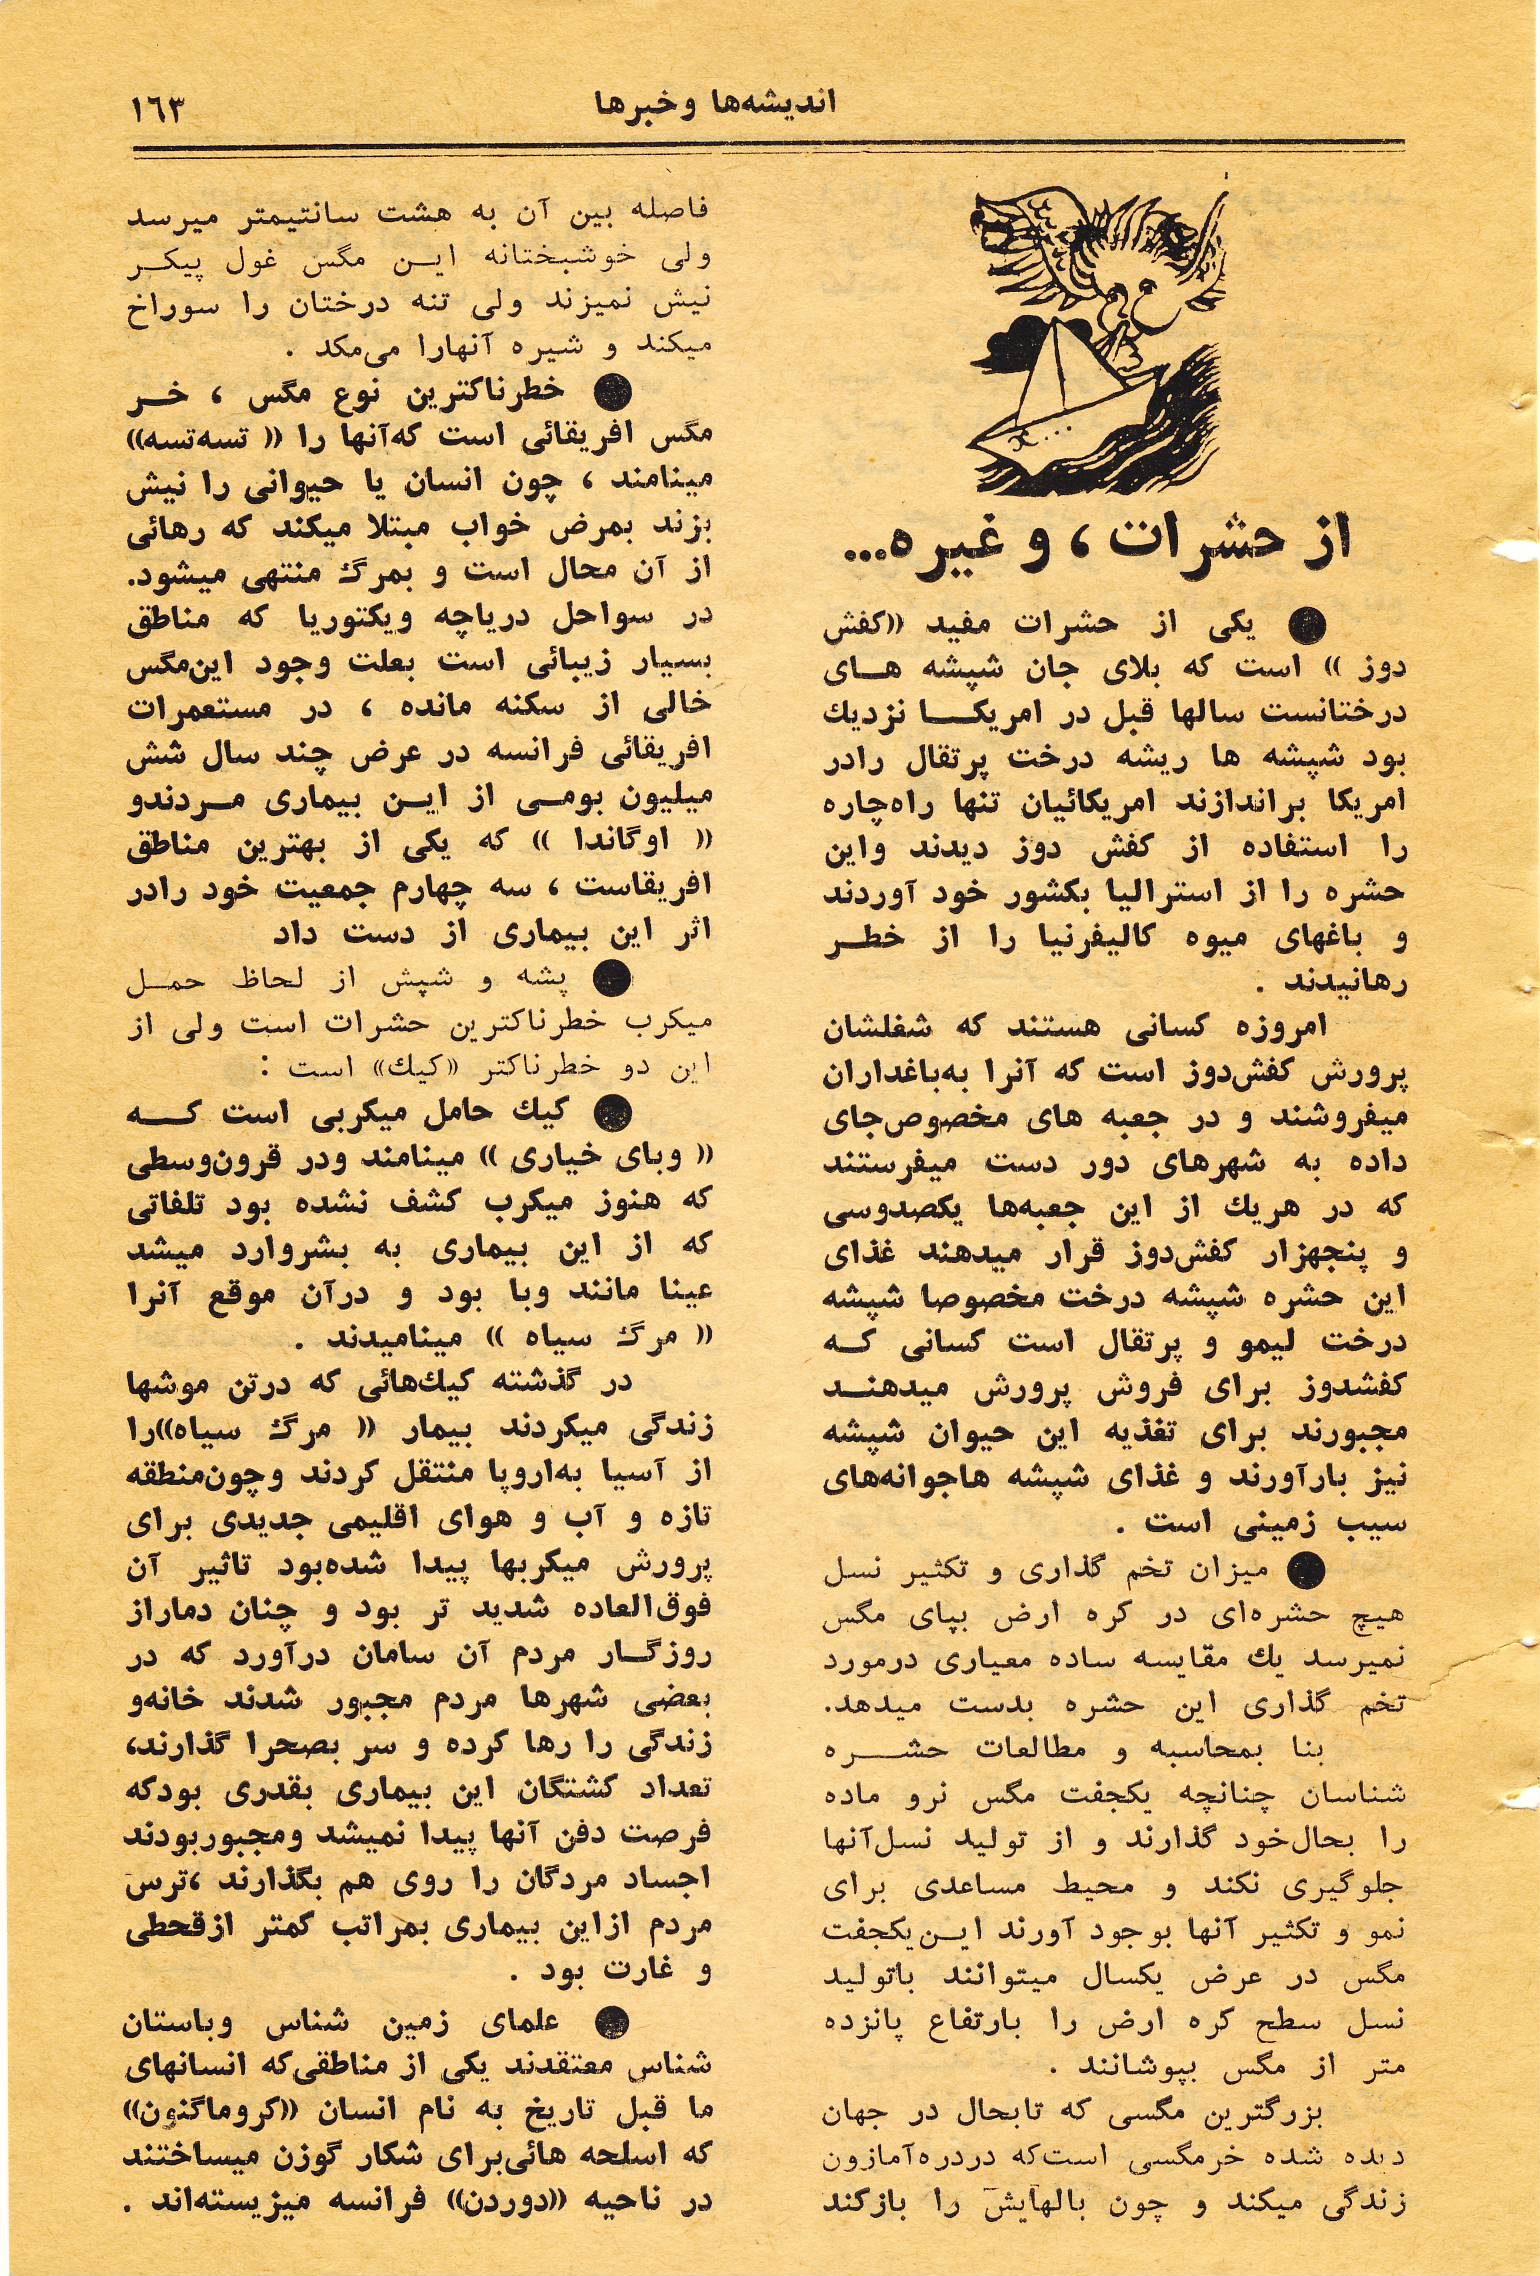 اندیشه‌ها و خبرها
۱۶۳
از حشرات ، و غیره...
● یکی از حشرات مفید ((کفش
دوز )) است که بلای جان شپشه هـای
درختانست سالها قبل در امریکـا نزدیك
بود شپشه ها ریشه درخت پرتقال رادر
امریکا براندازند امریکائیان تنها راه‌چاره
را استفاده از کفش دوز دیدند واین
حشره را از استرالیا بکشور خود آوردند
و باغهای میوه کالیفرنیا را از خطـر
رهانیدند .
امروزه کسانی هستند که شغلشان
پرورش کفش‌دوز است که آنرا به‌باغداران
میفروشند و در جعبه های مخصوص‌جای
داده به شهرهای دور دست میفرستند
که در هریك از این جعبه‌ها یکصدوسی
و پنجهزار کفش‌دوز قرار میدهند غذای
این حشره شپشه درخت مخصوصا شپشه
درخت لیمو و پرتقال است کسانی کـه
کفشدوز برای فروش پرورش میدهنـد
مجبورند برای تغذیه این حیوان شپشه
نیز بارآورند و غذای شپشه هاجوانه‌های
سیب زمینی است .
● میزان تخم گذاری و تکثیر نسل
هیچ حشره‌ای در کره ارض بپای مگس
نمیرسد یك مقایسه ساده معیاری درمورد
تخم گذاری این حشره بدست میدهد.
بنا بمحاسبه و مطالعات حشـره
شناسان چنانچه یکجفت مگس نرو ماده
را بحال‌خود گذارند و از تولید نسل‌آنها
جلوگیری نکند و محیط مساعدی برای
نمو و تکثیر آنها بوجود آورند ایـن‌یکجفت
مگس در عرض یکسال میتوانند باتولید
نسل سطح کره ارض را بارتفاع پانزده
متر از مگس بپوشانند .
بزرگترین مگسی که تابحال در جهان
دیده شده خرمگسی است‌که دردره‌آمازون
زندگی میکند و چون بالهایش را بازکند
فاصله بین آن به هشت سانتیمتر میرسد
ولی خوشبختانه ایـن مگس غول پیکـر
نیش نمیزند ولی تنه درختان را سوراخ
میکند و شیره آنهارا می‌مکد .
● خطرناکترین نوع مگس ، خـر
مگس افریقائی است که‌آنها را (( تسه‌تسه))
مینامند ، چون انسان یا حیوانی را نیش
بزند بمرض خواب مبتلا میکند که رهائی
از آن محال است و بمرگ منتهی میشود.
در سواحل دریاچه ویکتوریا که مناطق
بسیار زیبائی است بعلت وجود این‌مگس
خالی از سکنه مانده ، در مستعمرات
افریقائی فرانسه در عرض چند سال شش
میلیون بومـی از ایـن بیماری مـردندو
(( اوگاندا )) که یکی از بهترین مناطق
افریقاست ، سه چهارم جمعیت خود رادر
اثر این بیماری از دست داد
● پشه و شپش از لحاظ حمـل
میکرب خطرناکترین حشرات است ولی از
این دو خطرناکتر ((کیك)) است :
● کیك حامل میکربی است کـه
(( وبای خیاری )) مینامند ودر قرون‌وسطی
که هنوز میکرب کشف نشده بود تلفاتی
که از این بیماری به بشروارد میشد
عینا مانند وبا بود و درآن موقع آنرا
(( مرگ سیاه )) مینامیدند .
در گذشته کیك‌هائی که درتن موشها
زندگی میکردند بیمار (( مرگ سیاه))را
از آسیا به‌اروپا منتقل کردند وچون‌منطقه
تازه و آب و هوای اقلیمی جدیدی برای
پرورش میکربها پیدا شده‌بود تاثیر آن
فوق‌العاده شدید تر بود و چنان دماراز
روزگـار مردم آن سامان درآورد که در
بعضی شهرها مردم مجبور شدند خانه‌و
زندگی را رها کرده و سر بصحرا گذارند،
تعداد کشتگان این بیماری بقدری بودکه
فرصت دفن آنها پیدا نمیشد ومجبوربودند
اجساد مردگان را روی هم بگذارند ،ترس
مردم ازاین بیماری بمراتب کمتر ازقحطی
و غارت بود .
● علمای زمین شناس وباستان
شناس معتقدند یکی از مناطقی‌که انسانهای
ما قبل تاریخ به نام انسان ((کروماگنون))
که اسلحه هائی‌برای شکار گوزن میساختند
در ناحیه ((دوردن)) فرانسه میزیسته‌اند .